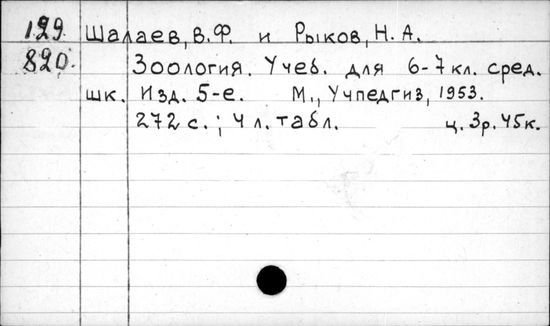 129. Шалаев, В.Ф. и Рыков, Н.А.
820. Зоология. Учеб. для 6-7 кл. сред.
шк. Изд. 5-е. М., Учпедгиз, 1953.
272 с.; 4 л. табл. ц. 3р. 45к.